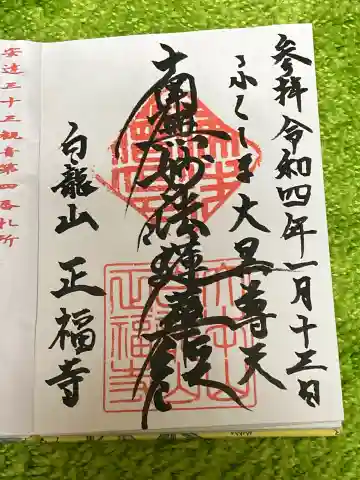 参拝 令和四年一月十三日
大黒尊天
南無妙法蓮華経
白龍山 正福寺
安達三十三観音第四番札所